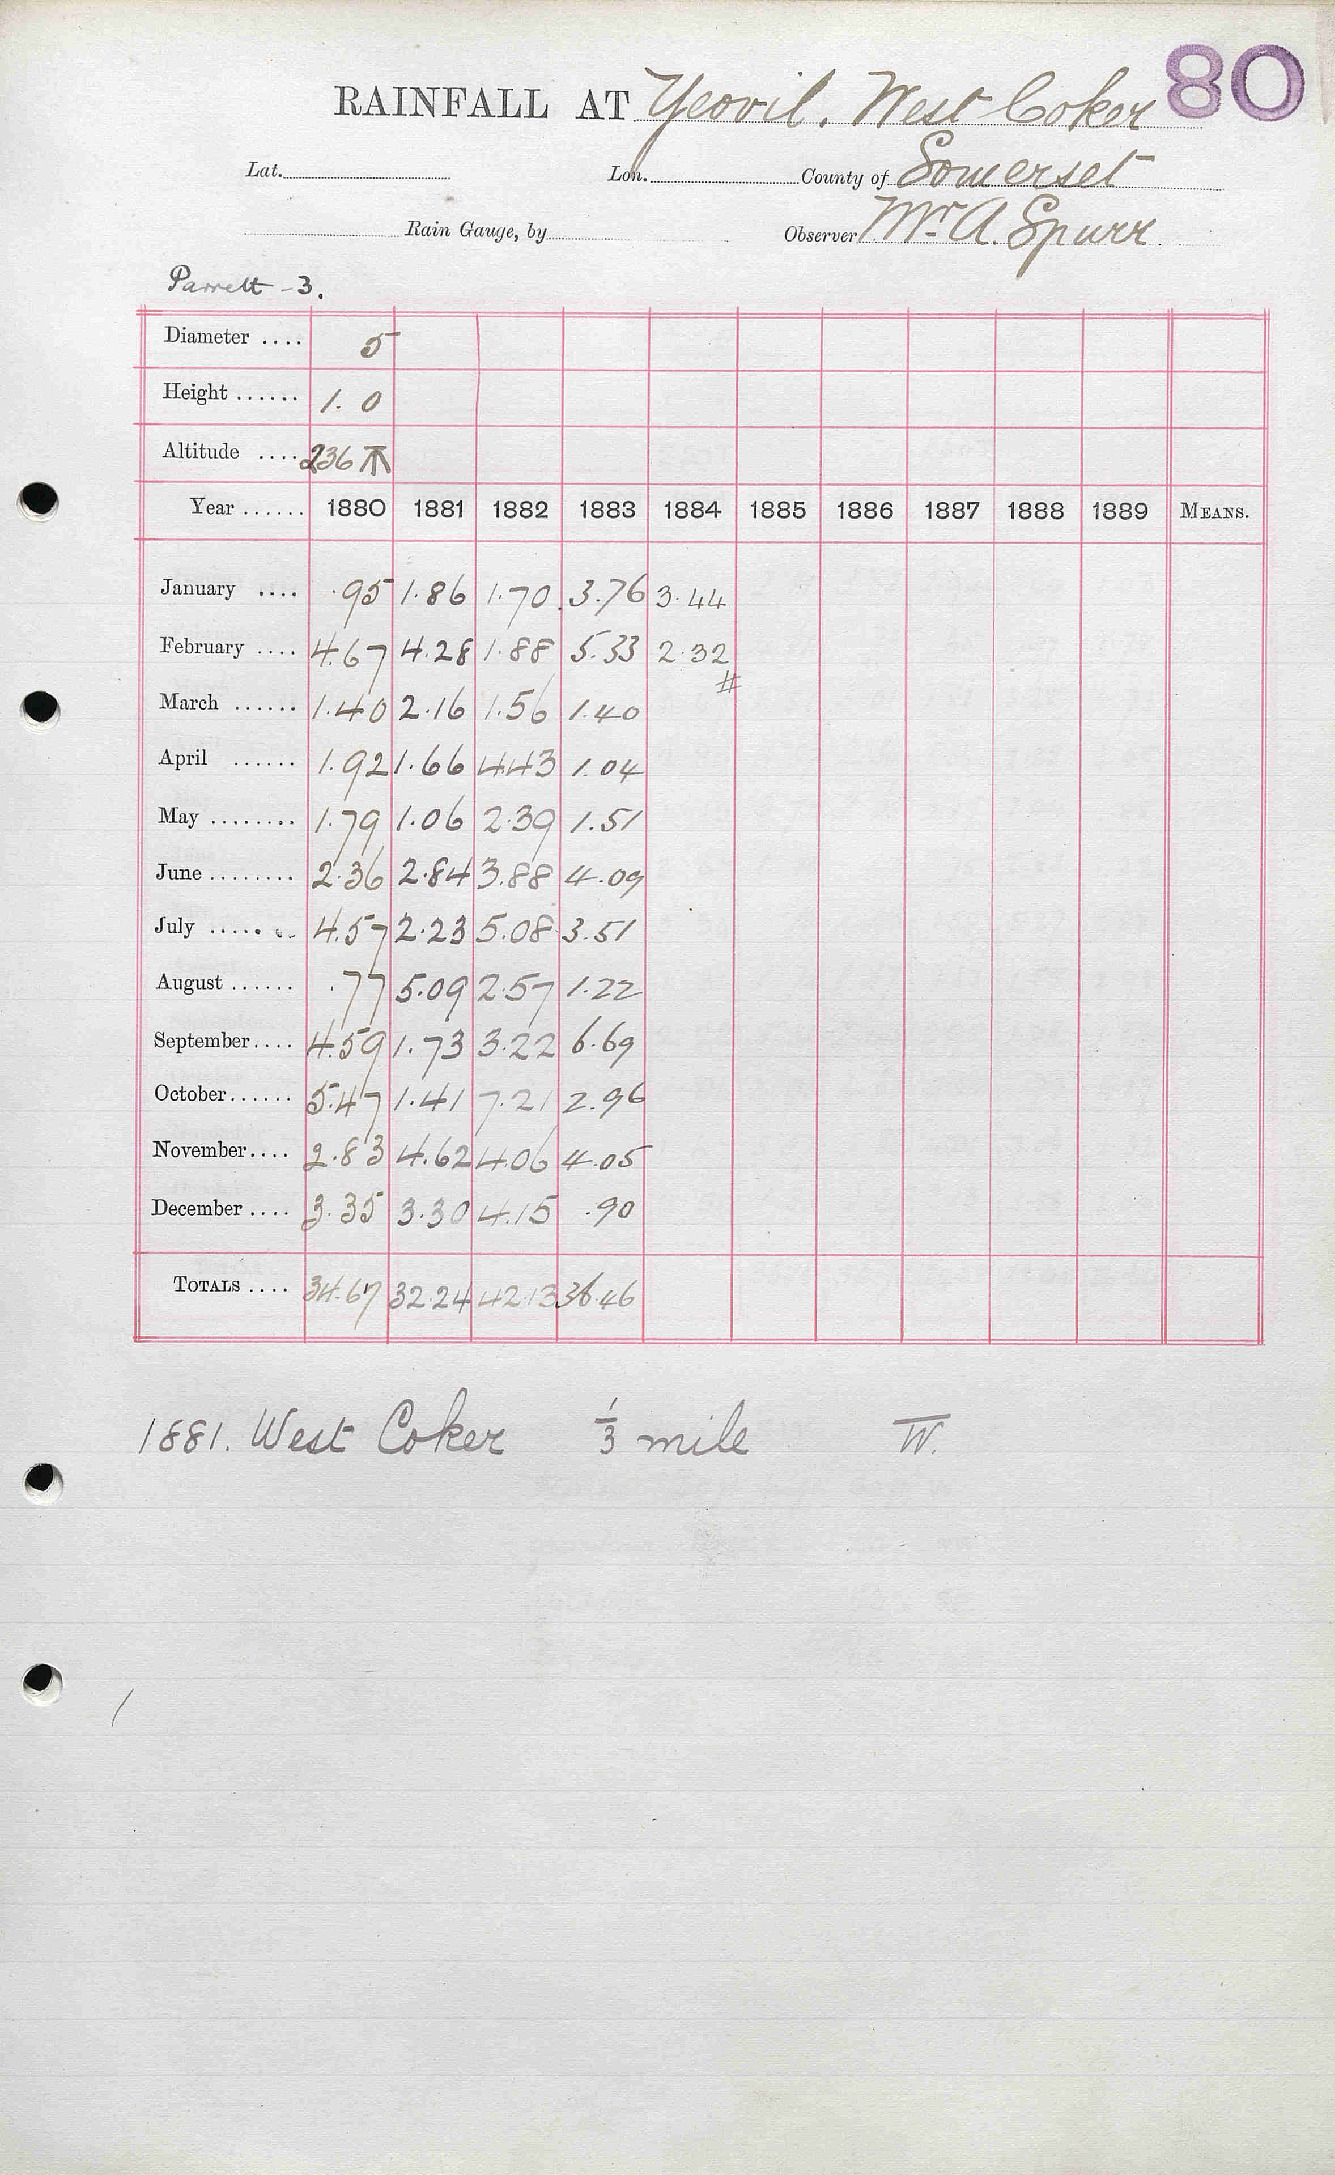 80
RAINFALL AT Yeovil. West Coker
Lat. Lon. County of Somerset
Rain Gauge, by Observer Mr. A. Spurr.
Parrett - 3.
Diameter .... 5
Height ...... 1. 0
Altitude .... 236
Year ...... 1880 1881 1882 1883 1884 1885 1886 1887 1888 1889 MEANS.
January .... .95 1.86 1.70 3.76 3.44
February .... 4.67 4.28 1.88 5.33 2.32
#
March ...... 1.40 2.16 1.56 1.40
April ...... 1.92 1.66 4.43 1.04
May ........ 1.79 1.06 2.39 1.51
June ........ 2.36 2.84 3.88 4.09
July ........ 4.57 2.23 5.08 3.51
August ...... .77 5.09 2.57 1.22
September .... 4.59 1.73 3.22 6.69
October ...... 5.47 1.41 7.21 2.96
November .... 2.83 4.62 4.06 4.05
December .... 3.35 3.30 4.15 .90
TOTALS .... 34.67 32.24 42.13 36.46
1881. West Coker 1/3 mile W.